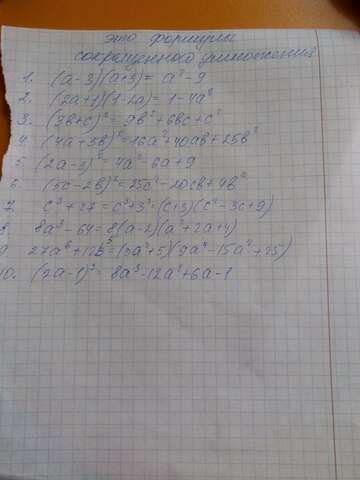 это формулы
сокращенного умножения
1. (a-3)(a+3)= a²-9
2. (2a+1)(1-2a)= 1-4a²
3. (3b+c)²= 9b²+6bc+c²
4 (4a+5b)²=16a²+40ab+25b²
5 (2a-3)²= 4a²-6a+9
6. (5c-2b)²=25c²-20cb+4b²
7. c³+27=c³+3³=(c+3)(c²-3c+9)
8. 8a³-64=8(a-2)(a²+2a+4)
9 27a⁶+12b³=(3a²+5)(9a⁴-15a²+25)
10. (2a-1)³= 8a³-12a²+6a-1